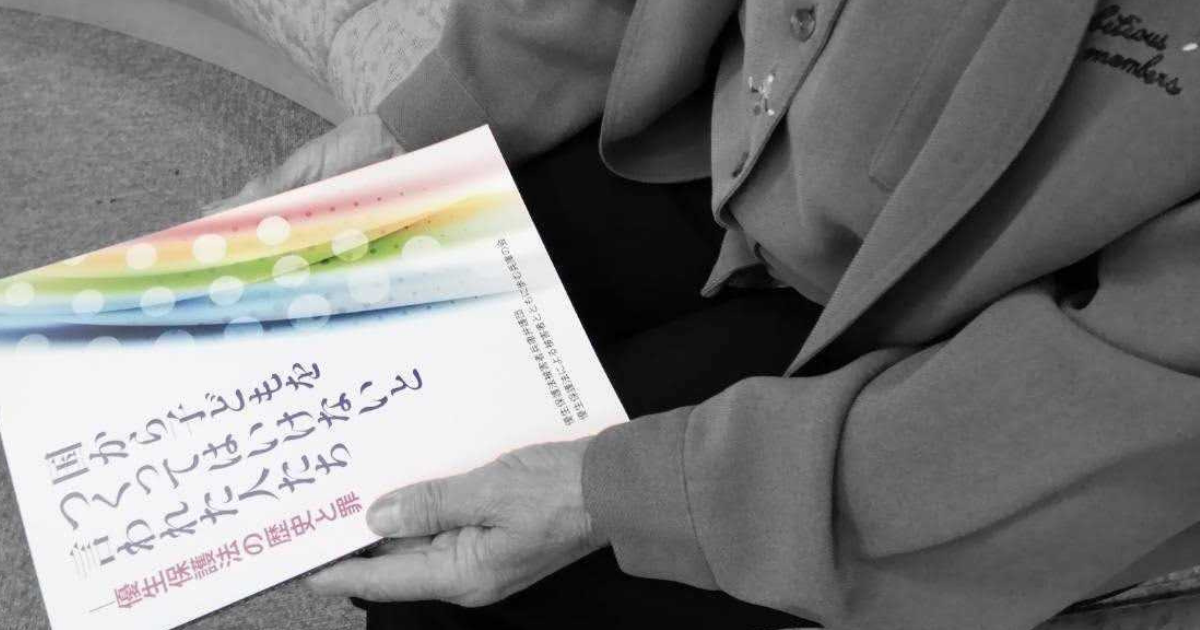 国から子どもを
つくってはいけないと
言われた人たち
―優生保護法の歴史と罪
優生保護法被害者兵庫弁護団
優生保護法による被害者とともに歩む兵庫の会
bitious
members